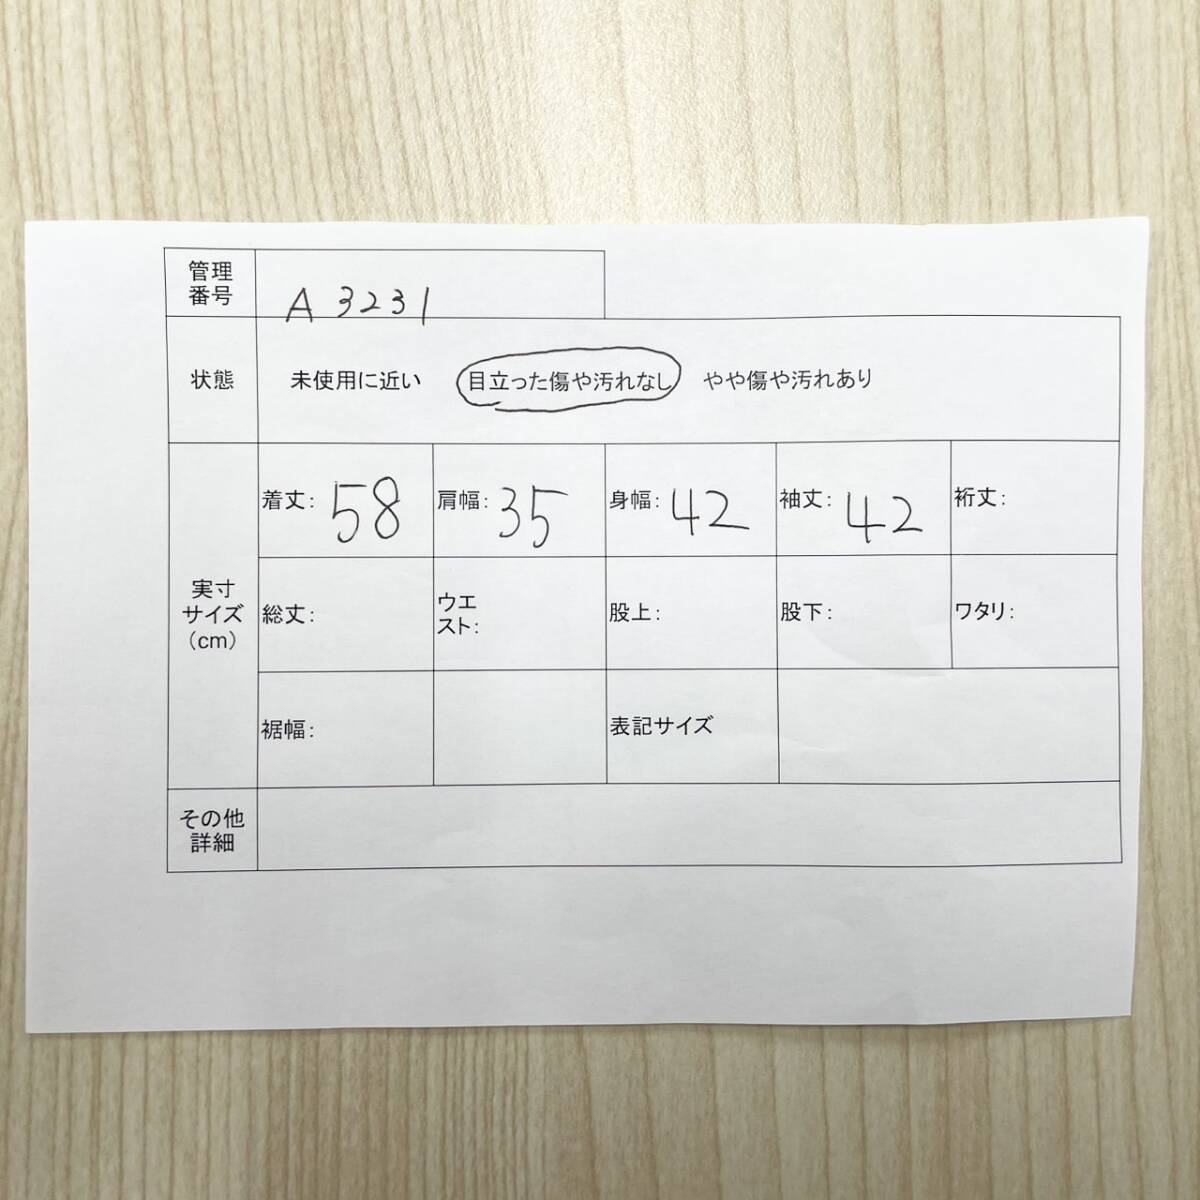 管理
番号
A 3231
状態
未使用に近い 目立った傷や汚れなし やや傷や汚れあり
実寸
サイズ
（cm）
着丈： 58 肩幅： 35 身幅： 42 袖丈： 42 裄丈：
総丈： ウエ
スト： 股上： 股下： ワタリ：
裾幅： 表記サイズ
その他
詳細